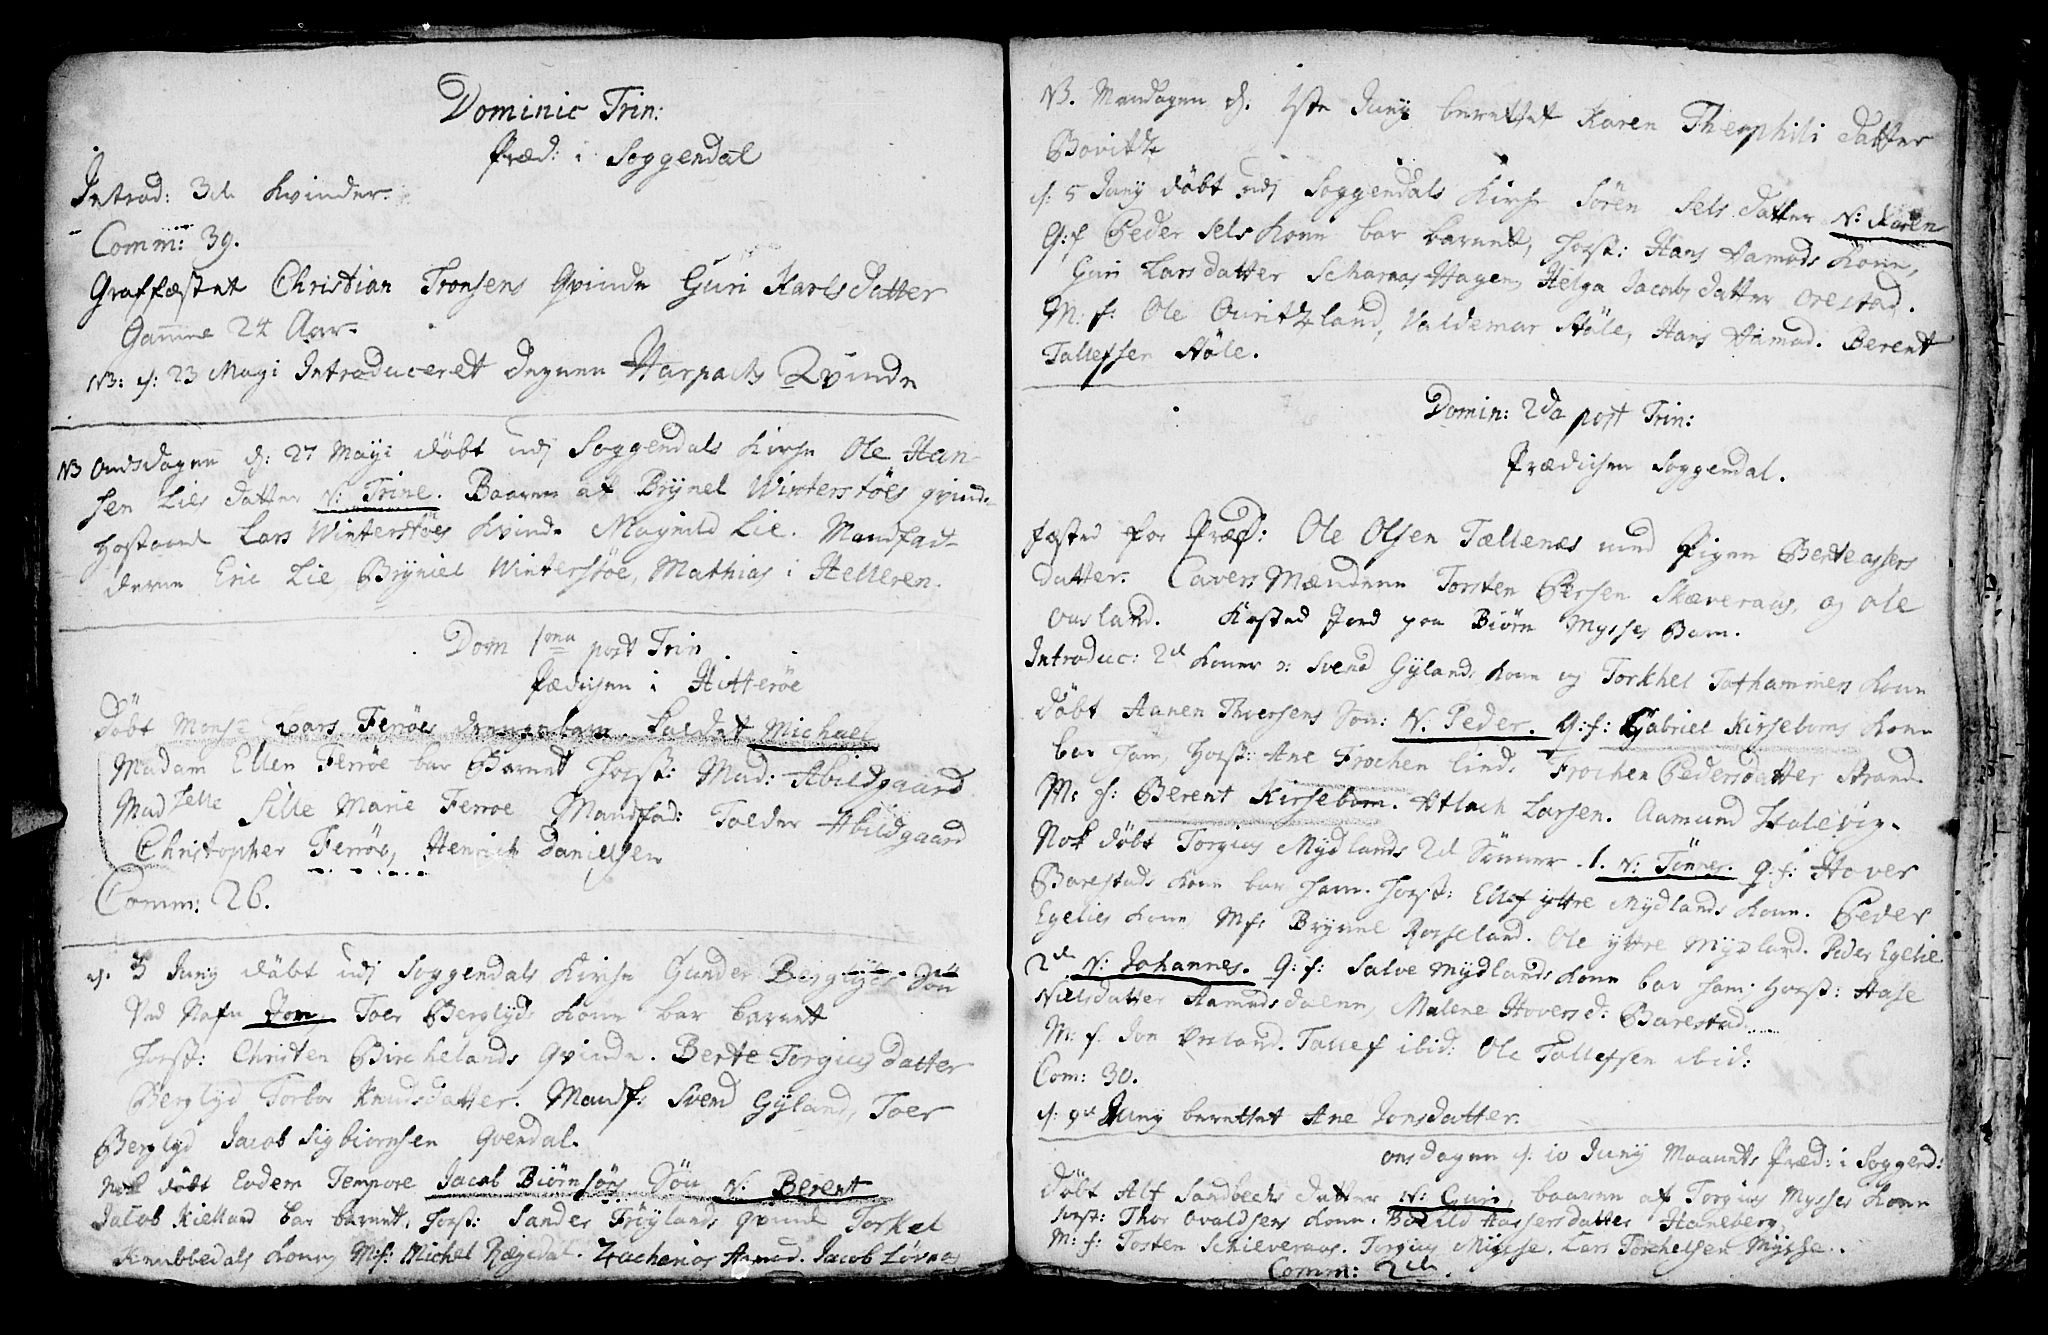 Dominic Trin:
Præd: i Soggendal
Introd: 3de Kvinder.
Comm: 39.
Graffæstet Christian Tronsens Qvinde Guri Karlsdatter
Gamme 24 Aar.
NB: d: 23 Maji Introduceret Degnen Harpachs Qvinde
NB Onsdagen d: 27 Maji døbt udj Soggendals Kirke Ole Han-
sen Lies datter N: Trine. Baaren af Brynel Winterstøes qvinde
Hostaaend Lars Winterstøes Kvinde Magnild Lie. Mandfad-
derne Eric Lie Bryniel Winterstøe, Mathias i Helleren.
Dom 1ma post Trin.
Prædichen i Hitterøe
Døbt Mons: Lars Ferrøes kaldet Michael
Madam Ellen Ferrøe bar Barnet Horst: Mad: Abildgaard
Madselle Sille Marie Ferroe Mandfad: Tolder Abildgaard
Christopher Ferrøe, Henrich Danielsen
Comm: 26.
d. 3 Junj døbt udj Soggendals Kirke Gunder Berglyds Søn
Ved Nafn Jon, Toer Berglyds Kone bar barnet
Horst: Christen Birchelands Qvinde. Berte Torgius datter
Berglyd Torbor Knudsdatter. Mandf: Svend Gyland, Toer
Berglyd Jacob Sigbiornsen Qvendal.
Nok døbt Eodem Tempore Jacob Biørnsøns Søn N: Berent
Jacob Kielland bar barnet, Horst: Sander Frøylands qvinde Torkel
Skrubbedals Kone M:f: Michel Rægedal. Zacherias Aamod. Jacob
NB. Mandagen d. 1ste Junj berettet Karen Theophili datter
d: 5 Junj døbt udj Soggendals Kirke Søren Sels datter N: Karen
Q:f Peder Sels Kone bar barnet, Horst: Hans Aamods Kone,
Guri Larsdatter Scharaas Hagen, Helga Jacobsdatter Orestad.
M: f: Ole Ouritzland, Valdemar Støle, Hans Aamod. Berent
Tallefsen Støle.
Domin: 2da post Trin:
Prædichen Soggendal.
fæsted for Præd: Ole Olsen Tællenes med Pigen Berte assers
datter. Cavers Mændene Torsten Persen Skæveraas, og Ole
Ousland. Kasted Jord paa Biørn Mysses Barn.
Introduc: 2de Koner : Svend Gylands Kone og Torkhel Tothammers Kone
døbt Aanen Thorsens Søn: N. Peder. Q:f: Gabriel Kirsebons Kone
bar ham, Horst: Ane Frochen Linds Frochen Pedersdatter Strand.
M: f: Berent Kirsebom. Atlach Larsen. Aamund Halevig.
Nok døbt Torgius Mydlands 2de Sønner. 1. N: Tønnes. Q:f: Hover
Barestads Kone bar ham. Horst: Ellef yttre Mydlands Kone. Peder
Egelies Kone M:f: Brynel Rosseland. Ole yttre Mydland. Peder Egelie
2de N: Johannes. Q: f: Salve Mydlands Kone bar ham, Horst: Aase
Nielsdatter Aamodsdalen, Malene Hovers d: Barestad
M: f. Jon Tallef ibid: Ole Tallefsen ibid:
Com: 30.
d: 9de Junj berettet Ane Jonsdatter.
onsdagen d. 10 Junj Maanets Præd: i Soggend:
Døbt Alf Sandbechs datter N: Guri, baaren af Torgius Mysses Kone
Horst: Thor Ovaldsens Kone. Bodild Hassersdatter Haneberg,
M: f: Tosten Schieveraas. Torgius Mysse. Lars Torchelsen Mysse.
Comm: 2de.